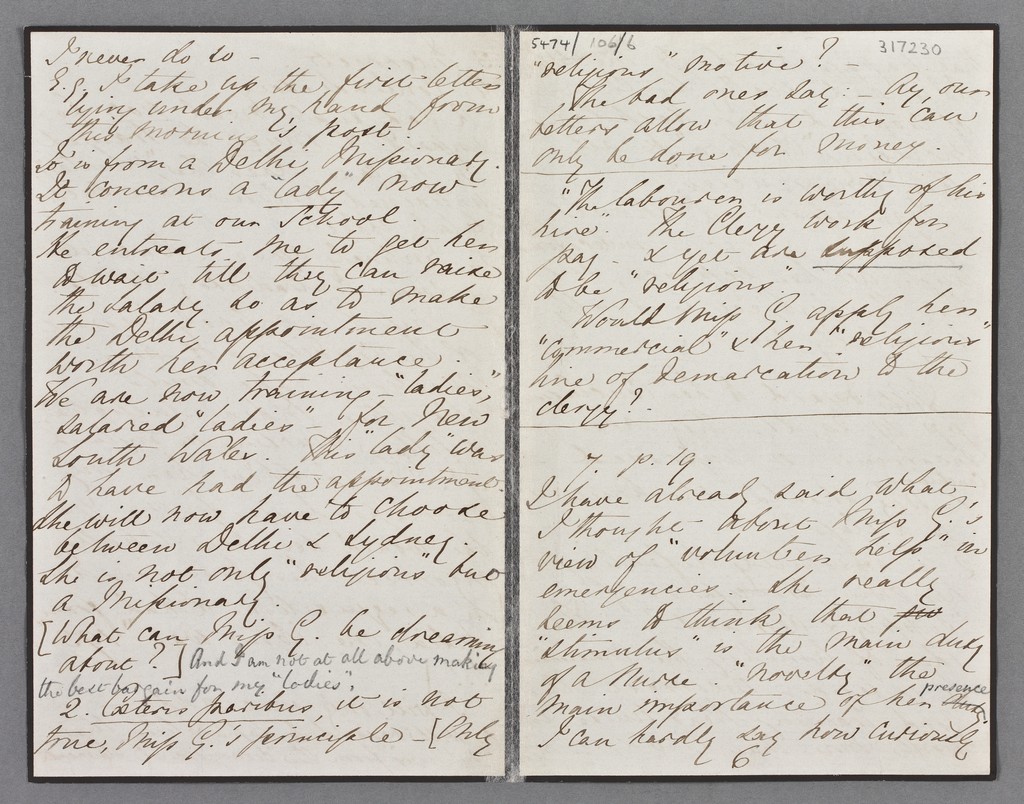 I never do so -
E.g. I take up the first letter
lying under my hand from
this morning's post.
It is from a Delhi Missionary.
It concerns a "lady" now
training at our School.
He entreats me to get her
to wait till they can raise
the salary so as to make
the Delhi appointment
worth her acceptance.
We are now training - "ladies",
salaried "ladies" - for New
South Wales. This "lady" was
to have had the appointment.
She will now have to choose
between Delhi & Sydney.
She is not only "religious" but
a Missionary.
[What can Miss G. be dreaming
about?] And I am not at all above making
the best bargain for my "ladies".
2. Caeteris paribus, it is not
true, Miss G.'s principle - [Only
5474/ 106/6 317230
"religious" motive? -
The bad ones say: - Ay, our
betters allow that this can
only be done for money.
"The labourer is worthy of his
hire". The Clergy work for
pay - & yet are supposed
to be "religious".
Would Miss G. apply her
"commercial" & her "religious"
line of demarcation to the
clergy?
7. p. 19.
I have already said what
I thought about Miss G.'s
view of "volunteer help" in
emergencies. She really
seems to think that
"stimulus" is the main duty
of a Nurse. "novelty" the
main importance of her presence
I can hardly say how curiously
6